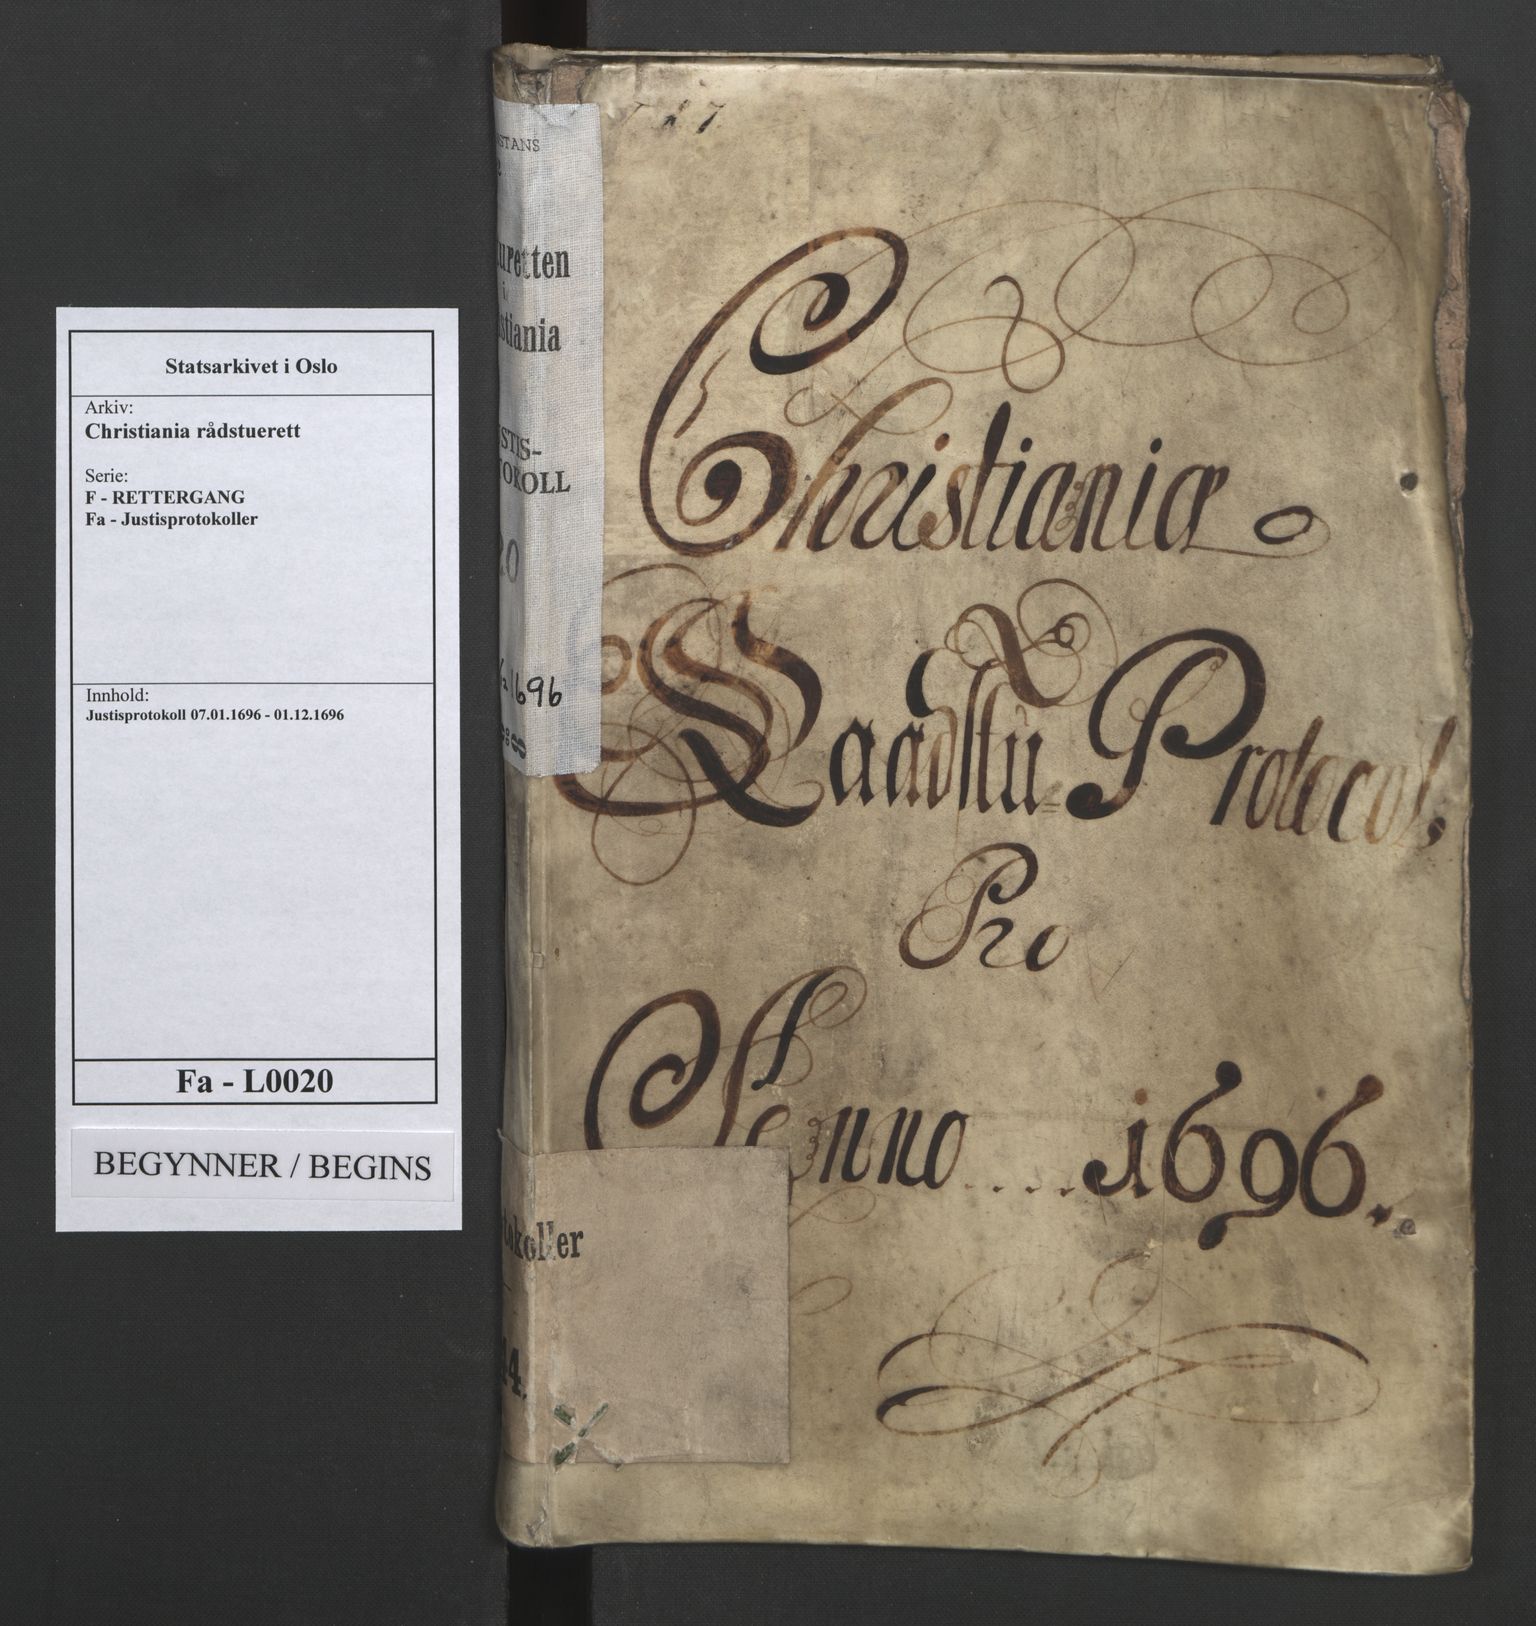 Statsarkivet i Oslo
Arkiv:
Christiania rådstuerett
Serie:
F - RETTERGANG
Fa - Justisprotokoller
Innhold:
Justisprotokoll 07.01.1696 - 01.12.1696
Fa - L0020
BEGYNNER / BEGINS
STANS
uretten
i
stiania
STIS-
OKOLL
20
1696
Christianiæ
Raadstu Protocol,
Pro
Anno .... 1696.
tokoller
14.